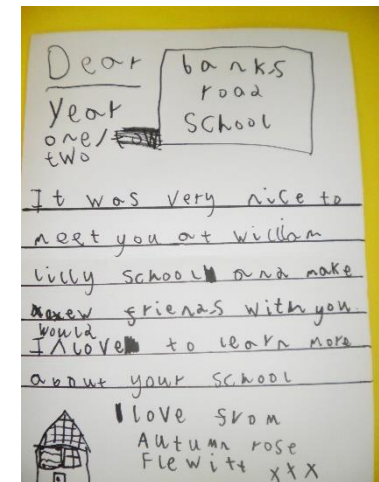 Dear
banks
road
School
Year
one/
two
It was very nice to
meet you at william
lilly school and make
new friends with you.
I would love to learn more
about your school
love from
Autumn rose
Flewitt xxx